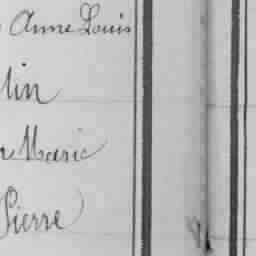 Anne Louis
lin
Marie
Pierre